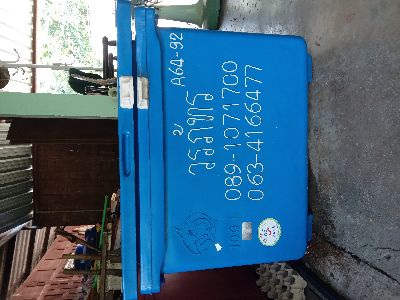 A64-92
วรภัทร
089-1071700
063-4166477